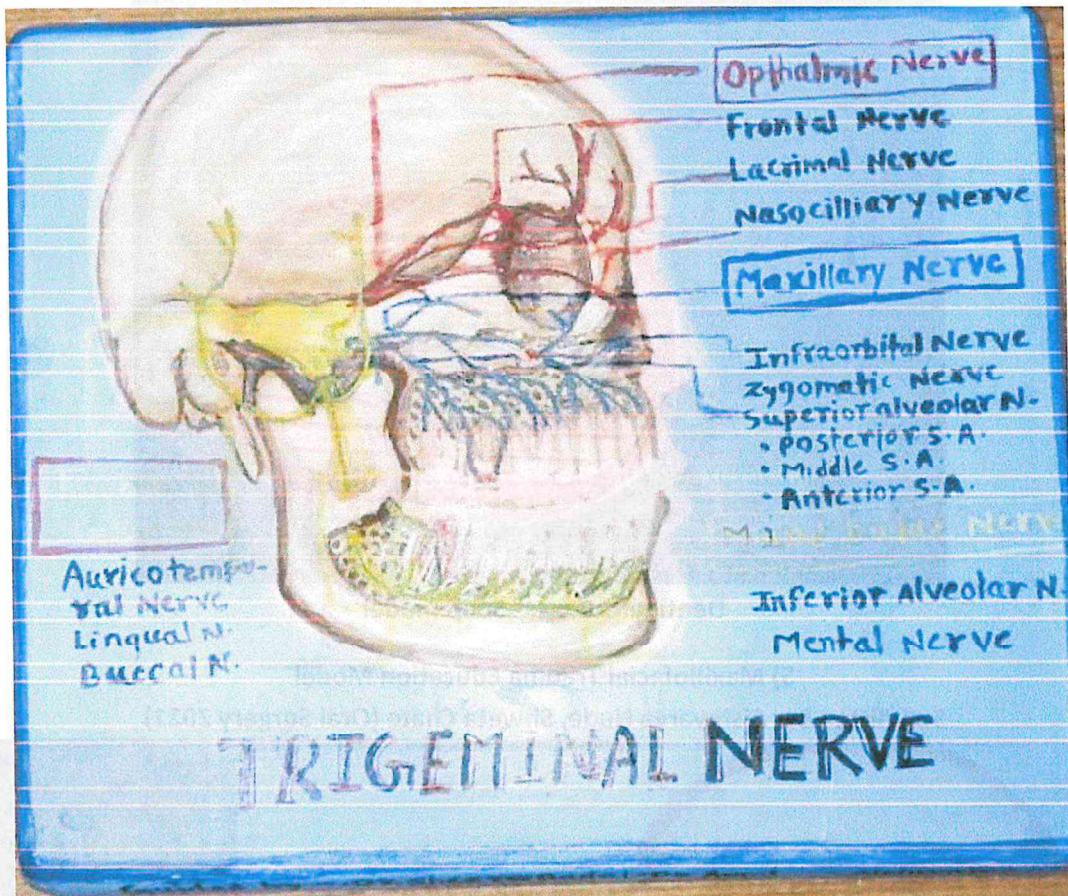 Opthalmic Nerve
Frontal Nerve
Lacrimal Nerve
Nasocilliary Nerve
Maxillary Nerve
Infraorbital Nerve
Zygomatic Nerve
Superior alveolar N.
• Posterior S.A.
• Middle S.A.
- Anterior S.A.
Nerve
Inferior Alveolar N.
Mental Nerve
Auricotempo-
ral Nerve
Lingual N.
Buccal N.
TRIGEMINAL NERVE